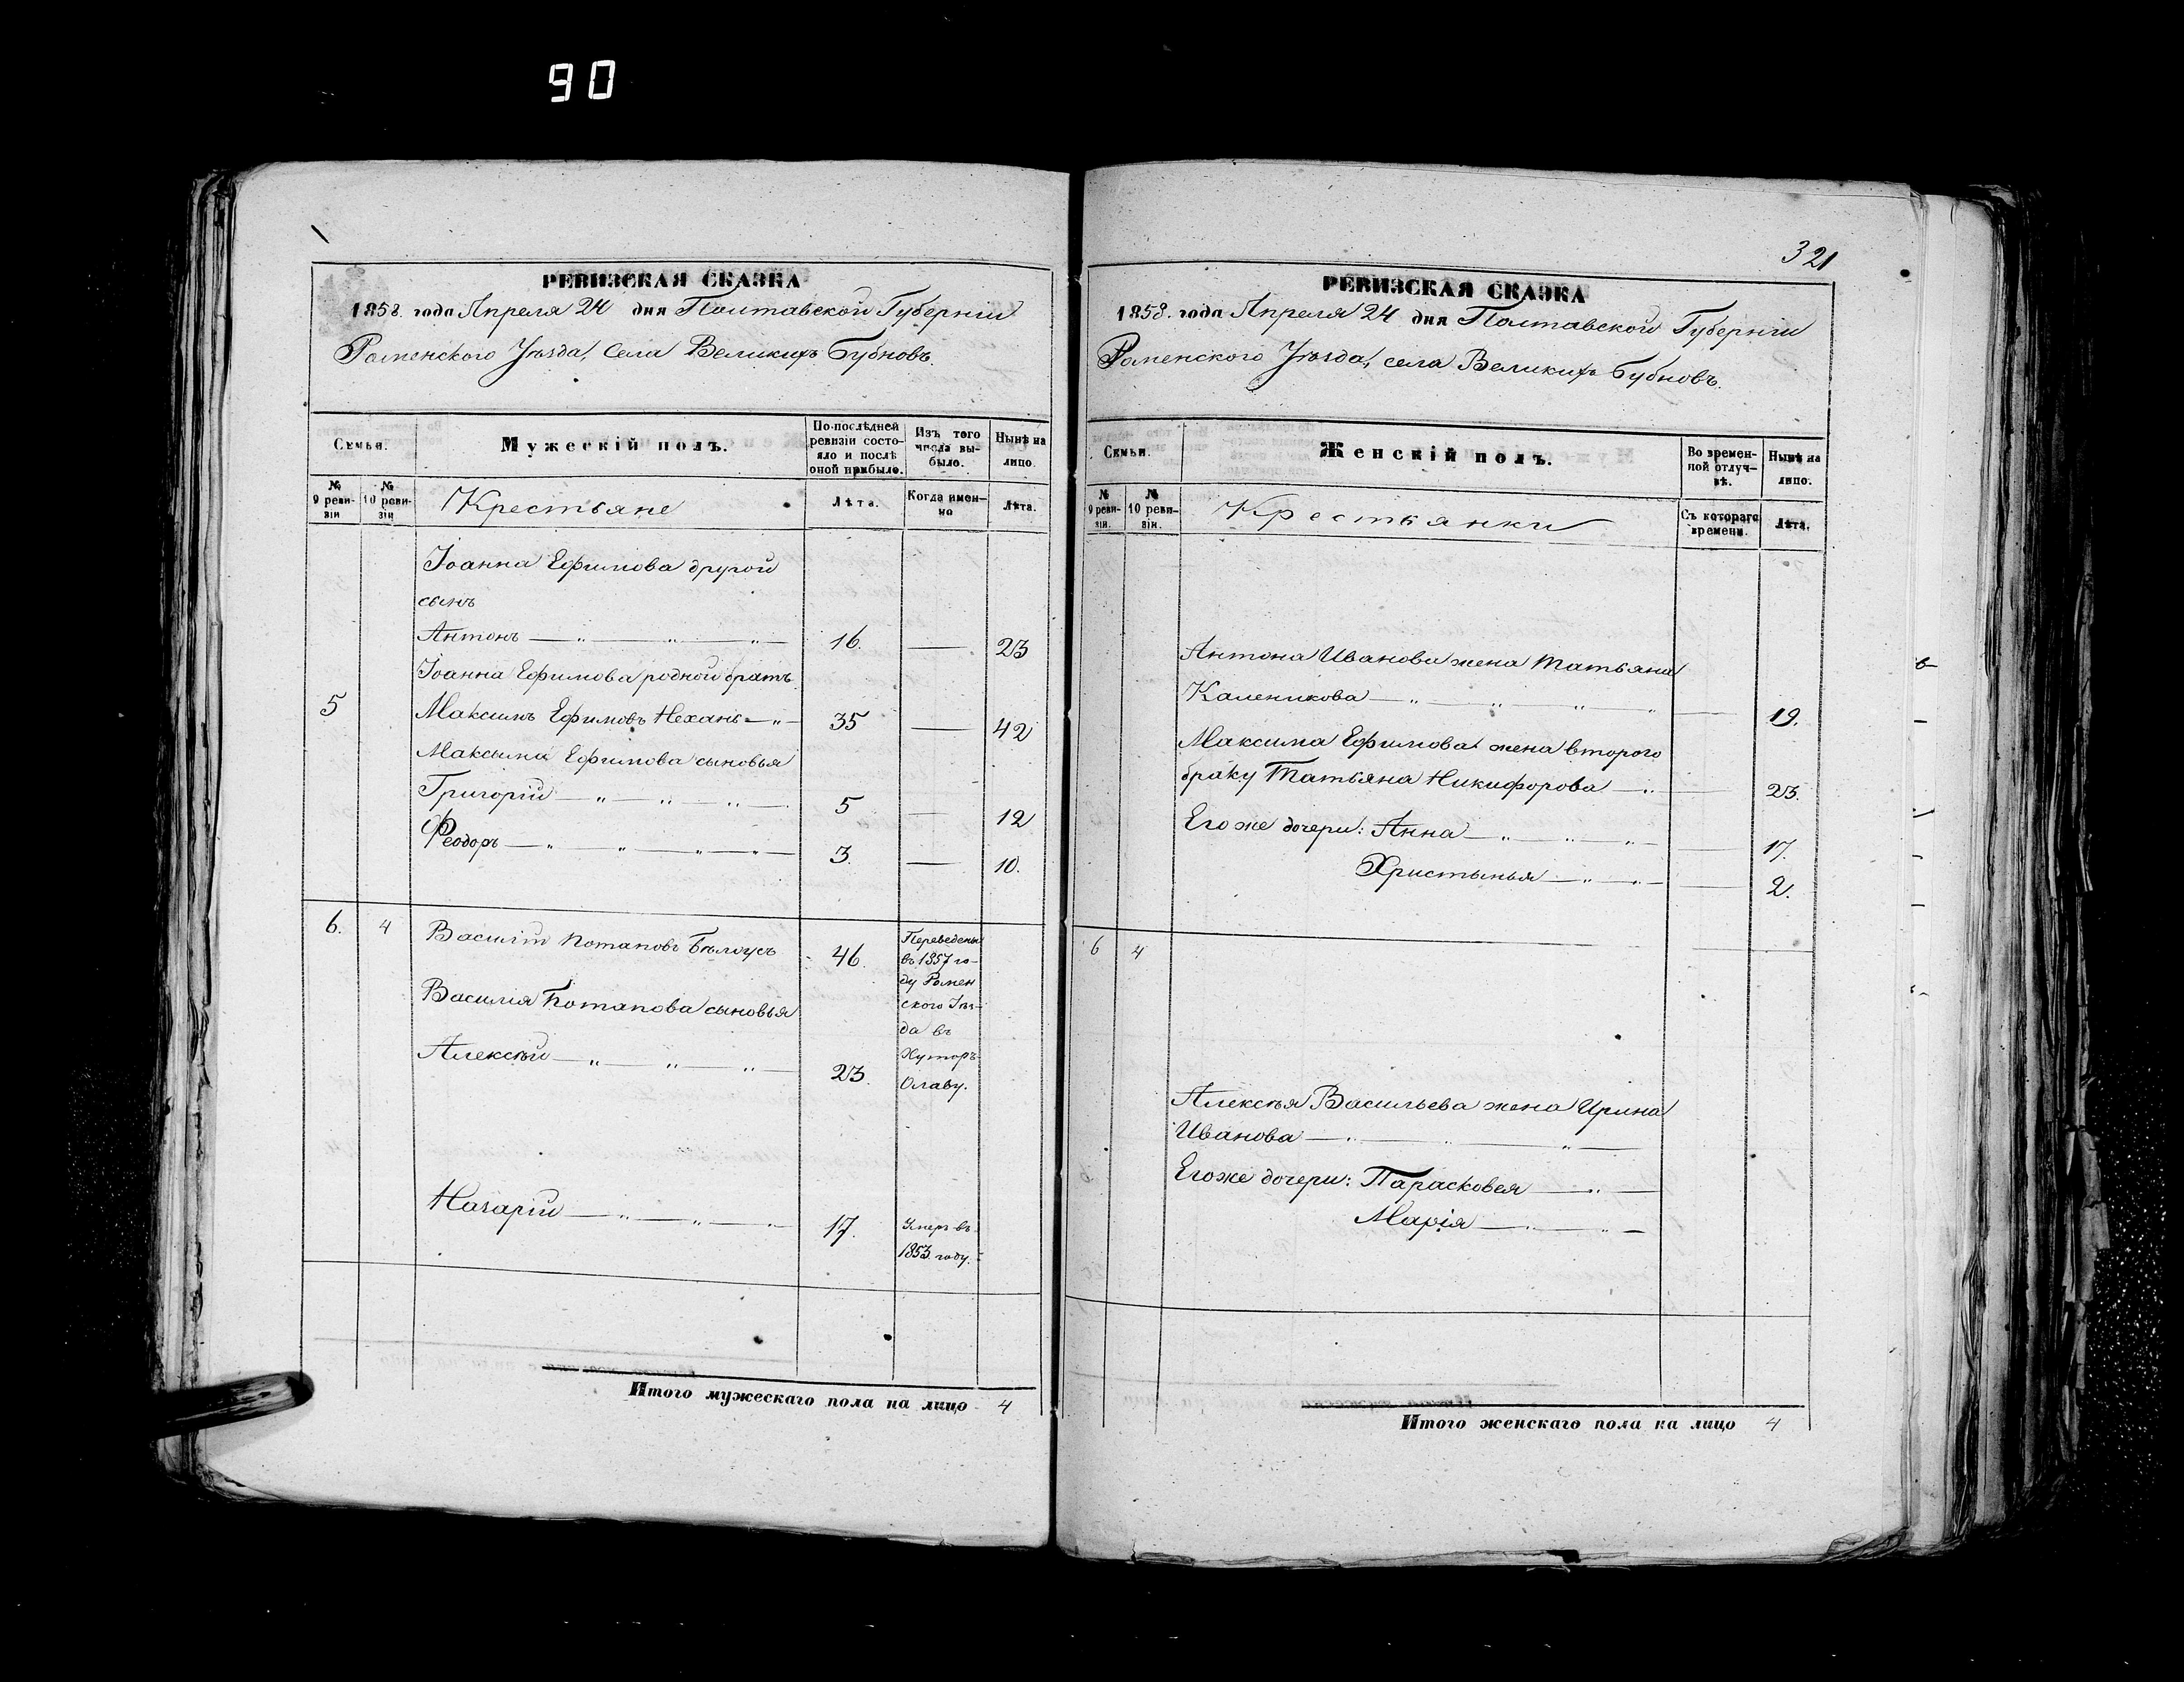 90
РЕВИЗСКАЯ СКАЗКА
1858. года Апреля 24 дня Полтавской Губерніи
Роменского Уѣзда, Села Великихъ Бубновъ.
Семьи.
Мужескій полъ.
По послѣдней ревизіи состояло и послѣ оной прибыло.
Изъ того числа выбыло.
Нынѣ на лицо.
№ 9 ревизіи
№ 10 ревизіи
Крестьяне
Лѣта.
Когда именно
Лѣта.
Іоанна Ефимова другой
сынъ
Антонъ — „ — „ — „ — 16. — 23
Іоанна Ефимова родной братъ
5 Максимъ Ефимовъ — „ — 35 — 42
Максима Ефимова сыновья
Григорій — „ — „ — „ — 5 — 12
Феодоръ — „ — „ — „ — „ — 3. — 10.
6. 4 Василій Потаповъ Бѣлоусъ 46. Переведены
въ 1857 го-
ду Ромен
ского Уѣз-
да въ
Хуторъ
Олаву.
Василія Потапова сыновья
Алексѣй — „ — „ — „ — 23.
Назарій — „ — „ — „ 17. Умеръ въ
1853. году.
Итого мужескаго пола на лицо 4
321
РЕВИЗСКАЯ СКАЗКА
1858. года Апреля 24 дня Полтавской Губерніи
Роменского Уѣзда, села Великихъ Бубновъ.
Семьи.
Женскій полъ.
Во временной отлучкѣ.
Нынѣ на лицо.
№ 9 ревизіи.
№ 10 ревизіи.
Крестьянки
Съ котораго времени.
Лѣта.
Антона Иванова жена Татьяна
Каленикова — „ — „ — „ — „ — 19.
Максима Ефимова жена второго
браку Татьяна Никифорова — „ — 23.
Его же дочери: Анна — „ — „ — „ — 17.
Христинья — „ — „ — 2.
6 4
Алексѣя Васильева жена Ирина
Иванова — „ — „ — „ —
Его же дочери: Парасковея — „ —
Марія — „ — „ —
Итого женскаго пола на лицо 4